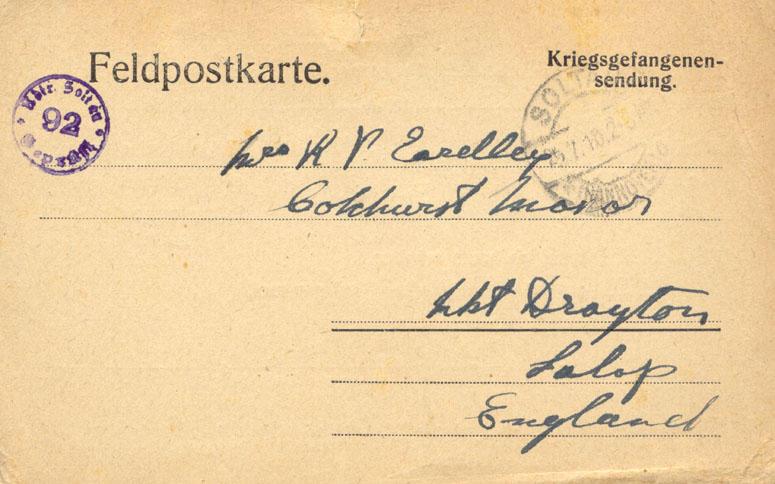 Feldpostkarte.
Kriegsgefangenen-
sendung.
92
Geprüft
SOLT
Mrs K P Eardley
Colehurst Manor
Mkt Drayton
Salop
England